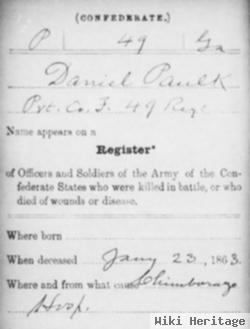 (CONFEDERATE.)
P 49 Ga
Daniel Paulk
Pvt. Co. F. 49 Regt
Name appears on a
Register*
of Officers and Soldiers of the Army of the Con-
federate States who were killed in battle, or who
died of wounds or disease.
Where born
When deceased Jany 23, 1863.
Where and from what cause Chimborazo
Hosp.
Wiki Heritage